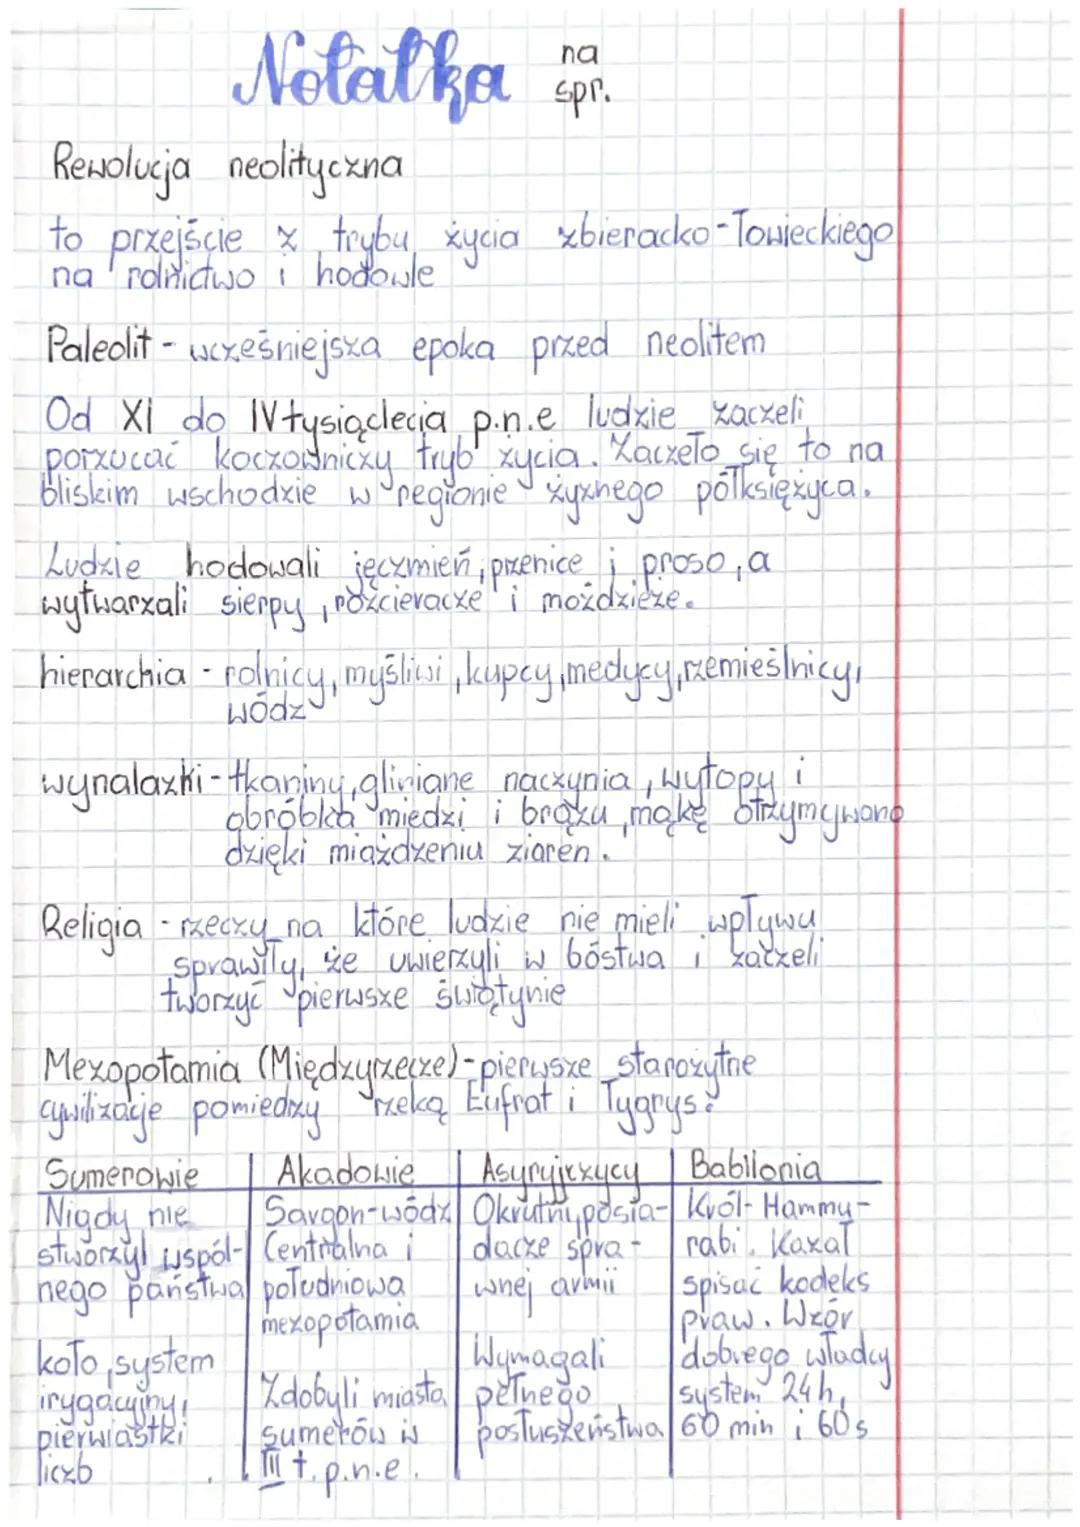 Notatka na spr.
Rewolucja neolityczna
to przejście z trybu życia zbieracko-łowieckiego
na rolnictwo i hodowle
Paleolit - wcześniejsza epoka przed neolitem
Od XI do IV tysiąclecia p.n.e ludzie zaczeli
porzucać koczowniczy tryb życia. Zaczeło się to na
bliskim wschodzie w regionie żyznego półksiężyca.
Ludzie hodowali jęczmień, przenice i proso, a
wytwarzali sierpy, rozcieracze i moździeże.
hierarchia - rolnicy, myśliwi, kupcy, medycy, rzemieślnicy,
wódz
wynalazki - tkaniny, gliniane naczynia, wytopy i
obróbka miedzi i brązu, mąkę otrzymywano
dzięki miażdzeniu ziaren.
Religia - rzeczy na które ludzie nie mieli wpływu
sprawiły, że uwierzyli w bóstwa i zaczeli
tworzyć pierwsze świątynie
Mezopotamia (Międzyrzecze) - pierwsze starożytne
cywilizacje pomiedzy rzeką Eufrat i Tygrys.
Sumerowie
Nigdy nie
stworzyl wspól-
nego państwa
koło, system
irygacyjny,
pierwiastki
liczb
Akadowie
Sargon-wódz
Centralna i
południowa
mezopotamia
Zdobyli miasta
sumerów w
III t. p.n.e.
Asyryjczycy
Okrutni, posia-
dacze spra-
wnej armii
Wymagali
pełnego
posłuszeństwa
Babilonia
Król - Hammu-
rabi. Kazał
spisać kodeks
praw. Wzór
dobrego władcy
system 24h,
60 min i 60s